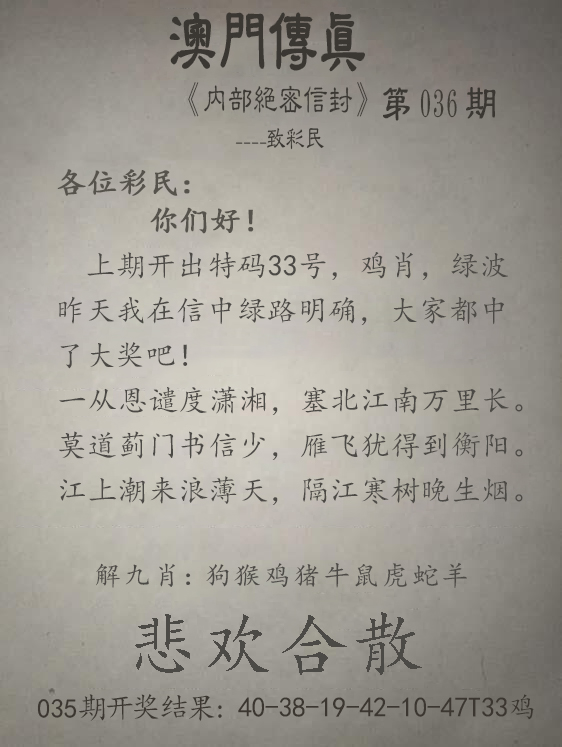 澳門傳眞
《内部絕密信封》第036期
----致彩民
各位彩民：
你们好！
上期开出特码33号，鸡肖，绿波
昨天我在信中绿路明确，大家都中
了大奖吧！
一从恩谴度潇湘，塞北江南万里长。
莫道蓟门书信少，雁飞犹得到衡阳。
江上潮来浪薄天，隔江寒树晚生烟。
解九肖：狗猴鸡猪牛鼠虎蛇羊
悲欢合散
035期开奖结果：40-38-19-42-10-47T33鸡